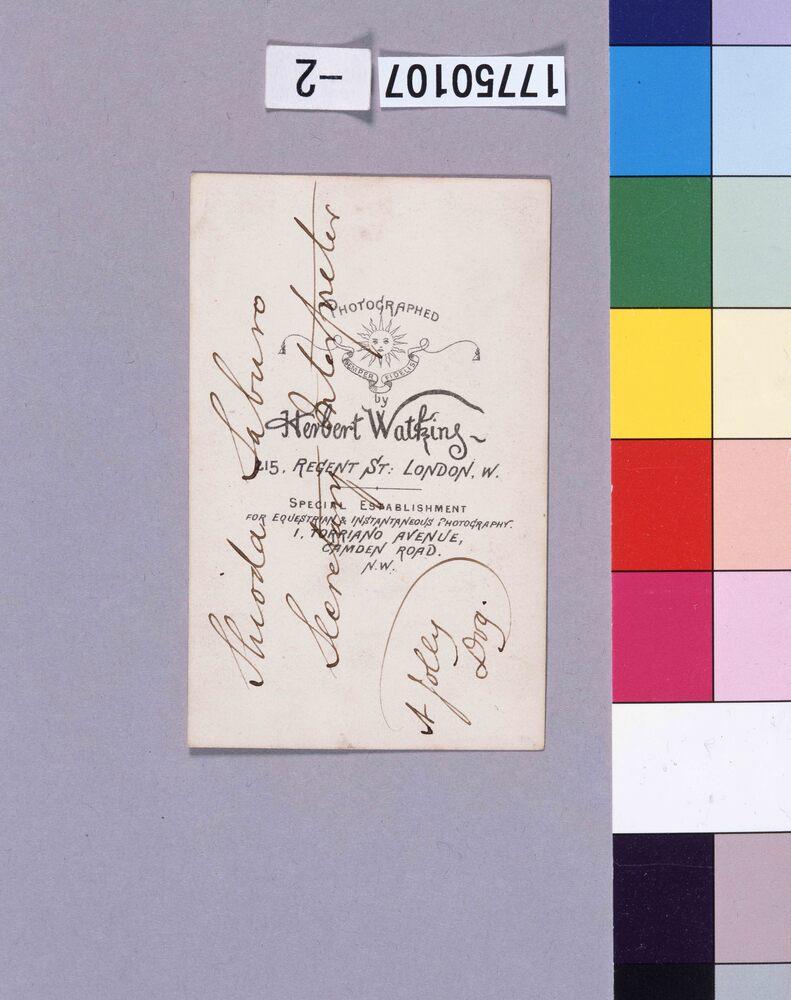 17750107
-2
PHOTOGRAPHED
SEMPER FIDELIS
by
Herbert Watkins
215, REGENT ST: LONDON, W.
SPECIAL ESTABLISHMENT
FOR EQUESTRIAN & INSTANTANEOUS PHOTOGRAPHY.
1, TORRIANO AVENUE,
CAMDEN ROAD.
N.W.
Shioda Saburo
Secretary Interpreter
A Jolly
Dog.